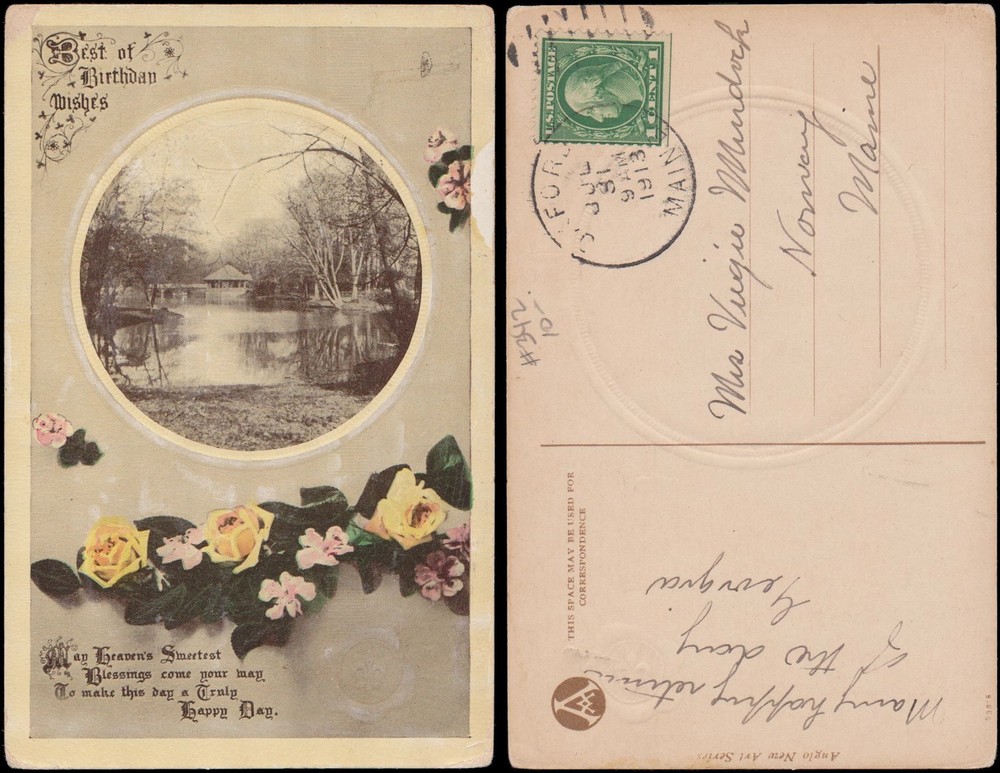 Best of
Birthday
Wishes
May Heaven's Sweetest
Blessings come your way
To make this day a Truly
Happy Day.
U.S. POSTAGE
1 CENT 1
OXFORD
JUL
31
9 AM
1913
MAINE
Mrs Virgie Murdock
Norway
Maine
#342
10-
THIS SPACE MAY BE USED FOR
CORRESPONDENCE
Many happy returns
of the day
Georgia
Anglo New Art Series
538-8